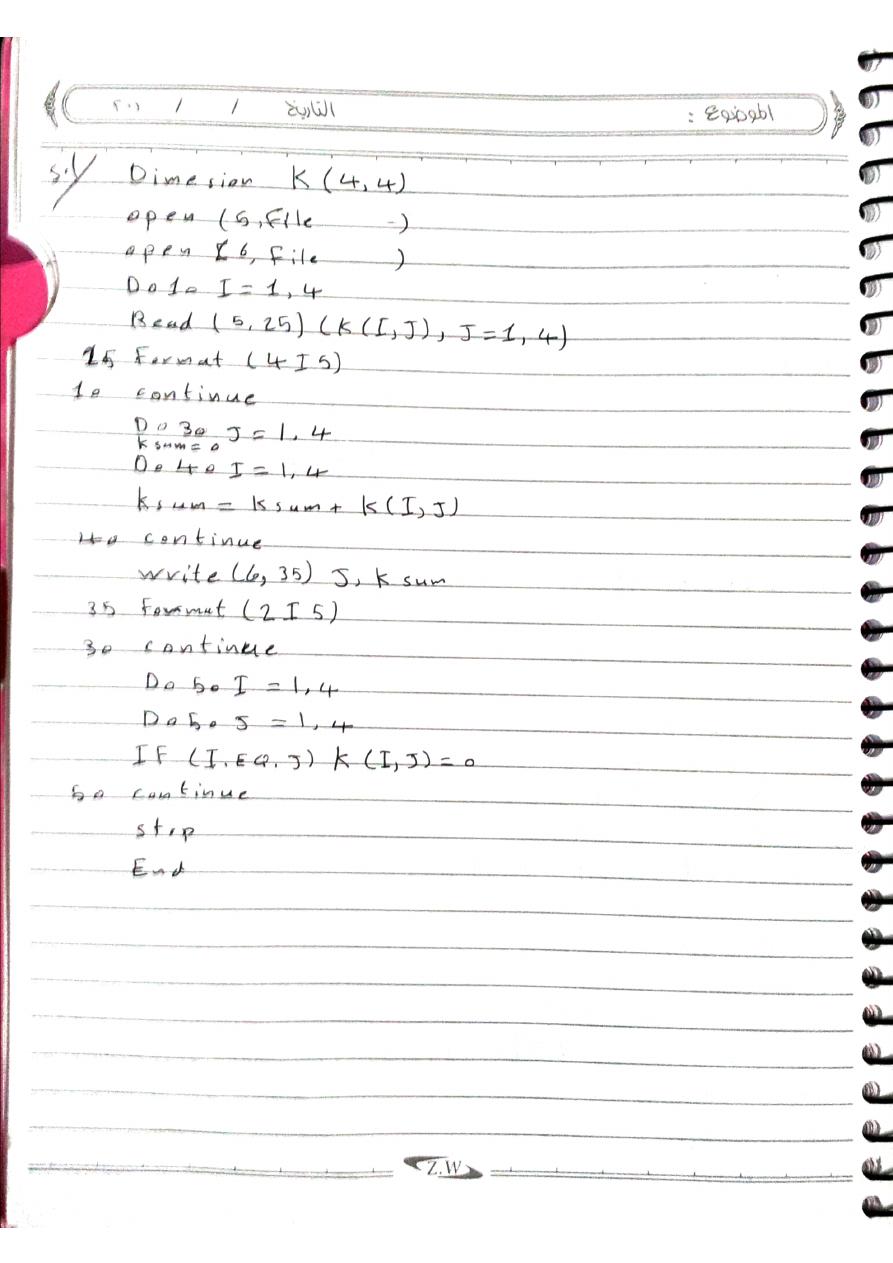 الموضوع : التاريخ / / ٢٠١
Sol/ Dimesion K(4,4)
open (5,File -)
open (6, File )
Do 10 I=1,4
Read (5,25) (K(I,J), J=1,4)
25 Format (4I5)
10 continue
Do 30 J=1,4
Ksum=0
Do 40 I=1,4
Ksum = Ksum+ K(I,J)
40 continue
write (6,35) J, Ksum
35 Format (2I5)
30 continue
Do 50 I=1,4
Do 50 J=1,4
IF (I.EQ.J) K(I,J)=0
50 continue
stop
End
Z.W